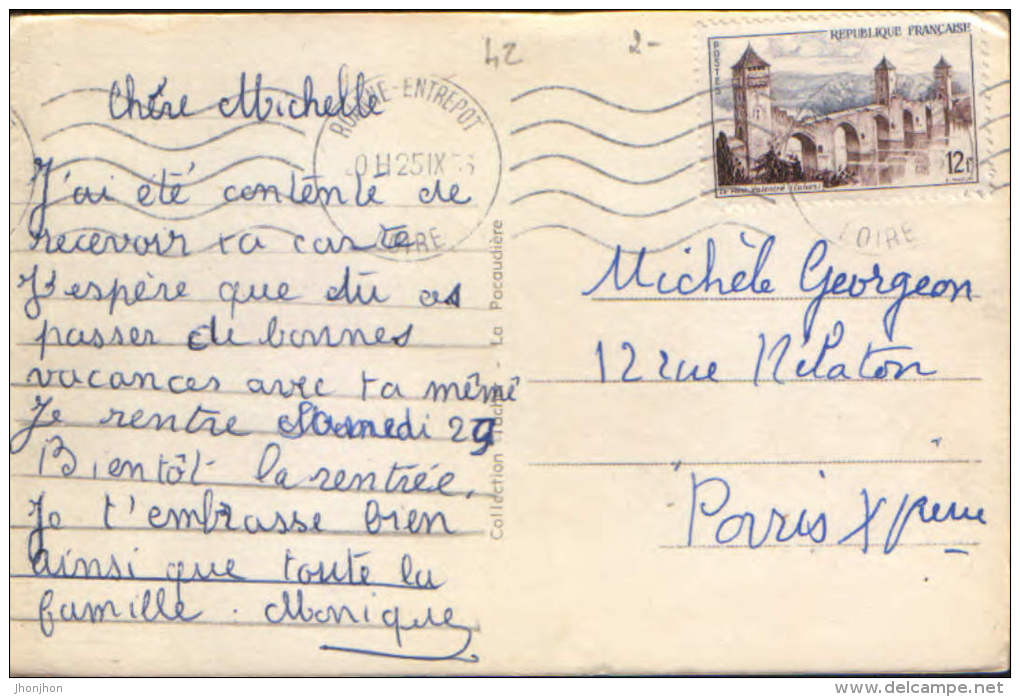 42
2-
Chère Michelle
J'ai été contente de
recevoir ta carte
J'espère que tu as
passer de bonnes
vacances avec ta mémé
Je rentre Samedi 29
Bientôt la rentrée.
Je t'embrasse bien
ainsi que toute la
famille. Monique
ROANNE-ENTREPOT
25 IX
LOIRE
Collection - La Pacaudière
REPUBLIQUE FRANÇAISE
POSTES
12F
LE PONT VALENTRÉ (CAHORS)
LOIRE
Michèle Georgeon
12 rue Nélaton
Paris
jhonjhon
www.delcampe.net